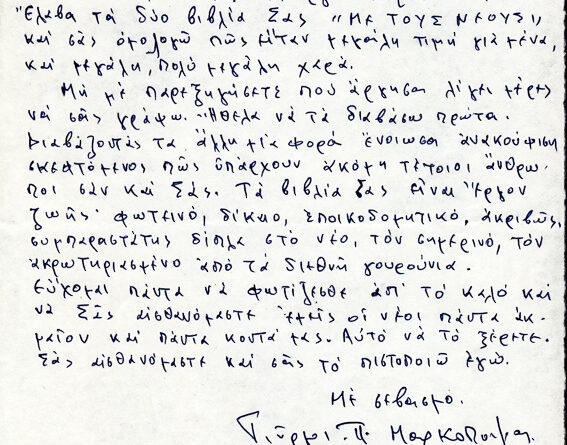 Ἔλαβα τὰ δύο βιβλία Σας "ΜΕ ΤΟΥΣ ΝΕΟΥΣ"
καὶ σᾶς ὁμολογῶ πὼς εἶταν μεγάλη τιμὴ γιὰ μένα,
καὶ μεγάλη, πολὺ μεγάλη χαρά.
Μὴ μὲ παρεξηγήσετε ποὺ ἄργησα λίγες μέρες
νὰ σᾶς γράψω. Ἤθελα νὰ τὰ διαβάσω πρῶτα.
Διαβάζοντάς τα ἄλλη μία φορὰ ἔνοιωσα ἀνακούφιση
σκεφτόμενος πὼς ὑπάρχουν ἀκόμη τέτοιοι ἄνθρω-
ποι σὰν καὶ Σᾶς. Τὰ βιβλία Σας εἶναι ἔργον
ζωῆς· φωτεινό, δίκαιο, ἐποικοδομητικό, ἀκριβῶς,
συμπαραστάτης δίπλα στὸ νέο, τὸν σημερινό, τὸν
ἀκρωτηριασμένο ἀπὸ τὰ διεθνῆ γουρούνια.
Εὔχομαι πάντα νὰ φωτίζεσθε ἀπ' τὸ καλὸ καὶ
νὰ Σᾶς αἰσθανόμαστε ἐμεῖς οἱ νέοι πάντα ἀκ-
μαῖον καὶ πάντα κοντά μας. Αὐτὸ νὰ τὸ ξέρετε.
Σᾶς αἰσθανόμαστε καὶ σᾶς τὸ πιστοποιῶ ἐγώ.
Μὲ σεβασμό.
Γιῶργος Π. Μαρκόπουλος